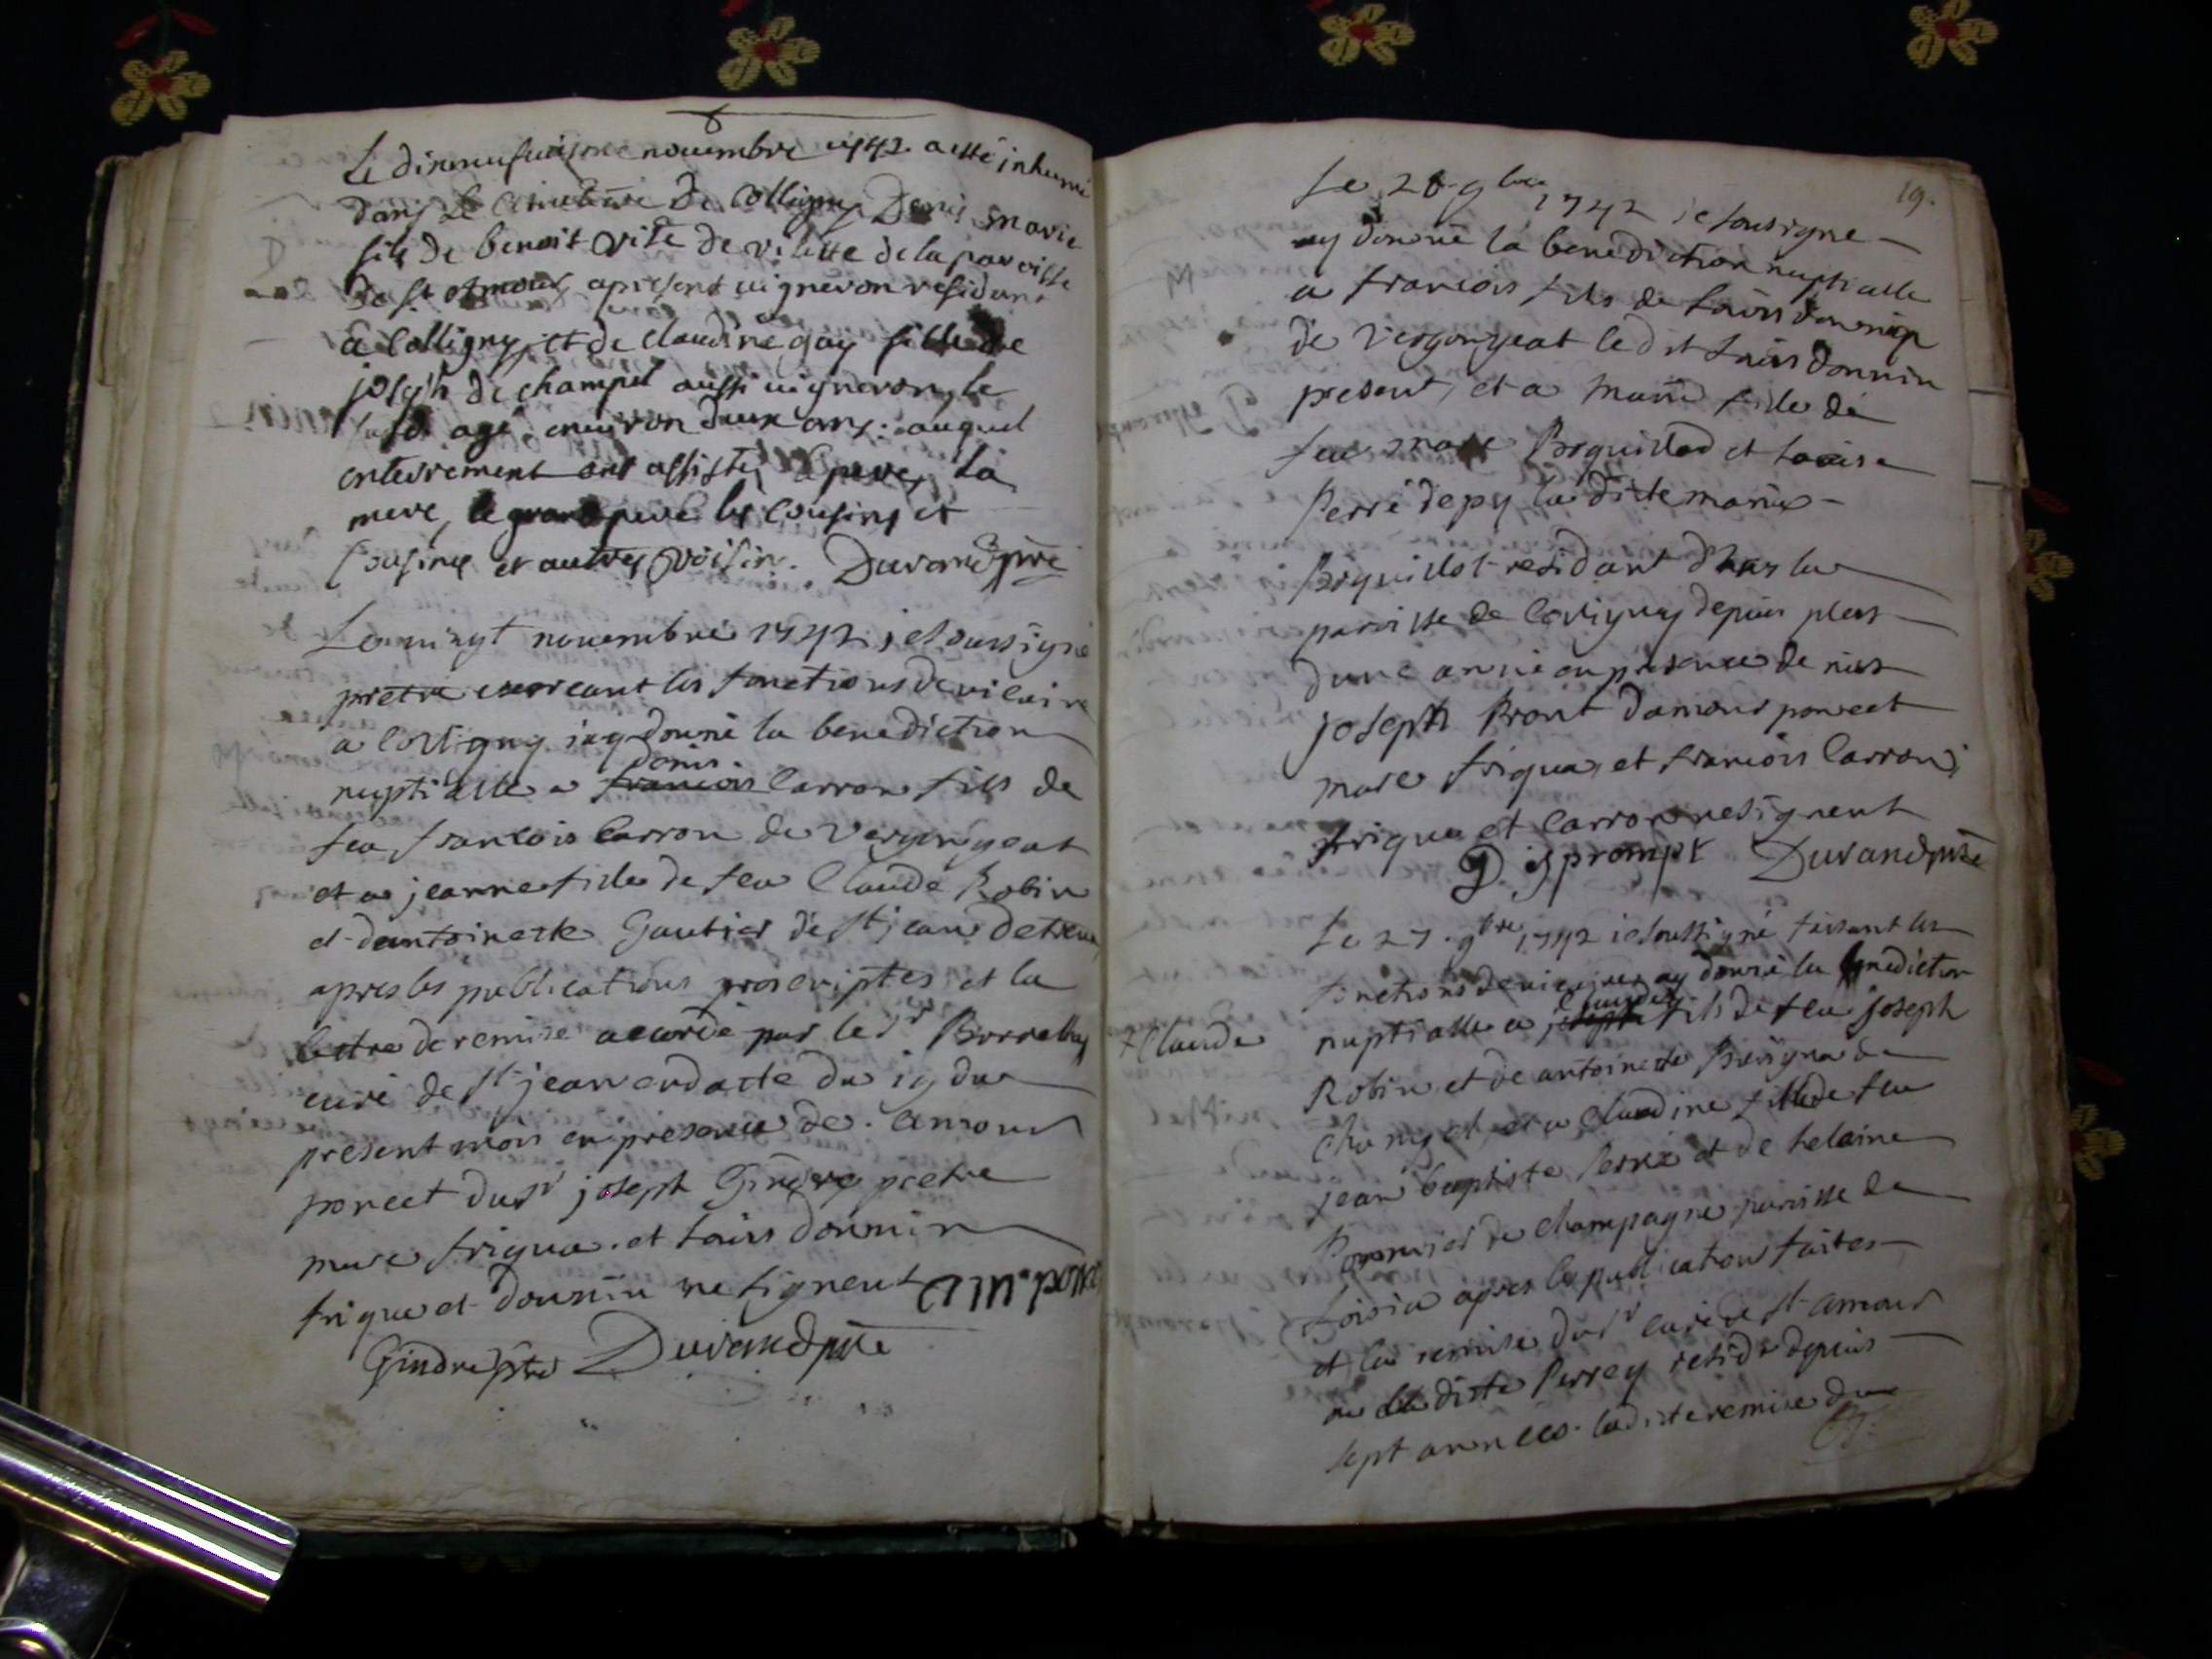 Le dixneufuiesme nouembre 1742 a esté inhumé
dans le cimetiere de Colligny Denis marie
fils de benoit vite de vilette de la paroisse
de st Amour, apresent uigneron residant
a Colligny, et de claudine gay fille de
joseph de champel aussi uigneron, le
agé enuiron deux ans: auquel
enterrement ont assistés le pere, la
mere, le grandpere les cousins et
cousines et autres voisins. Durand ptre
Le uingt nouembre 1742 je soussigné
pretre exerceant les fonctions de vicaire
a Colligny jay donné la benediction
denis
nuptialle a francois Carron fils de
feu francois Carron de Vergongeat
et a jeanne fille de feu Claude Robin
et dantoinette Gautier de st jean detreux
apres les publications proscriptes et la
lettre de remise accordé par le sr
curé de st jean en dacte du 19 du
present mois en presence de amour
poncet du sr joseph Gindre pretre
marc friqua et louis donnin
friqua et donnin ne signent am. ponc
Gindre ptre Durand ptre
19.
Le 26 9bre 1742 je sousigne
ay donné la benediction nuptialle
a francois fils de louis donnin
de Vergongeat ledit louis donnin
present, et a marie fille de
feu marc Boquillod et louise
Perré depy la dite marie
Boquillot residant dans la
paroisse de Coligny depuis plus
dune année en presence de
joseph Pront damour poncet
marc friqua, et francois Carron,
friqua et Carron ne signent
Durand ptre
Le 27. 9bre 1742 je soussigné faisant les
fonctions de vicaire, ay donné la benediction
claude
+ Claude nuptialle a joseph fils de feu joseph
Robin et de antoinette de
champel, et a Claudine fille de feu
jean baptiste Perré et de helaine
de champagne paroisse de
apres les publications faites
et la remise du sr curé de st amour
ou la dite Perrey reside depuis
sept années. la dite remise du